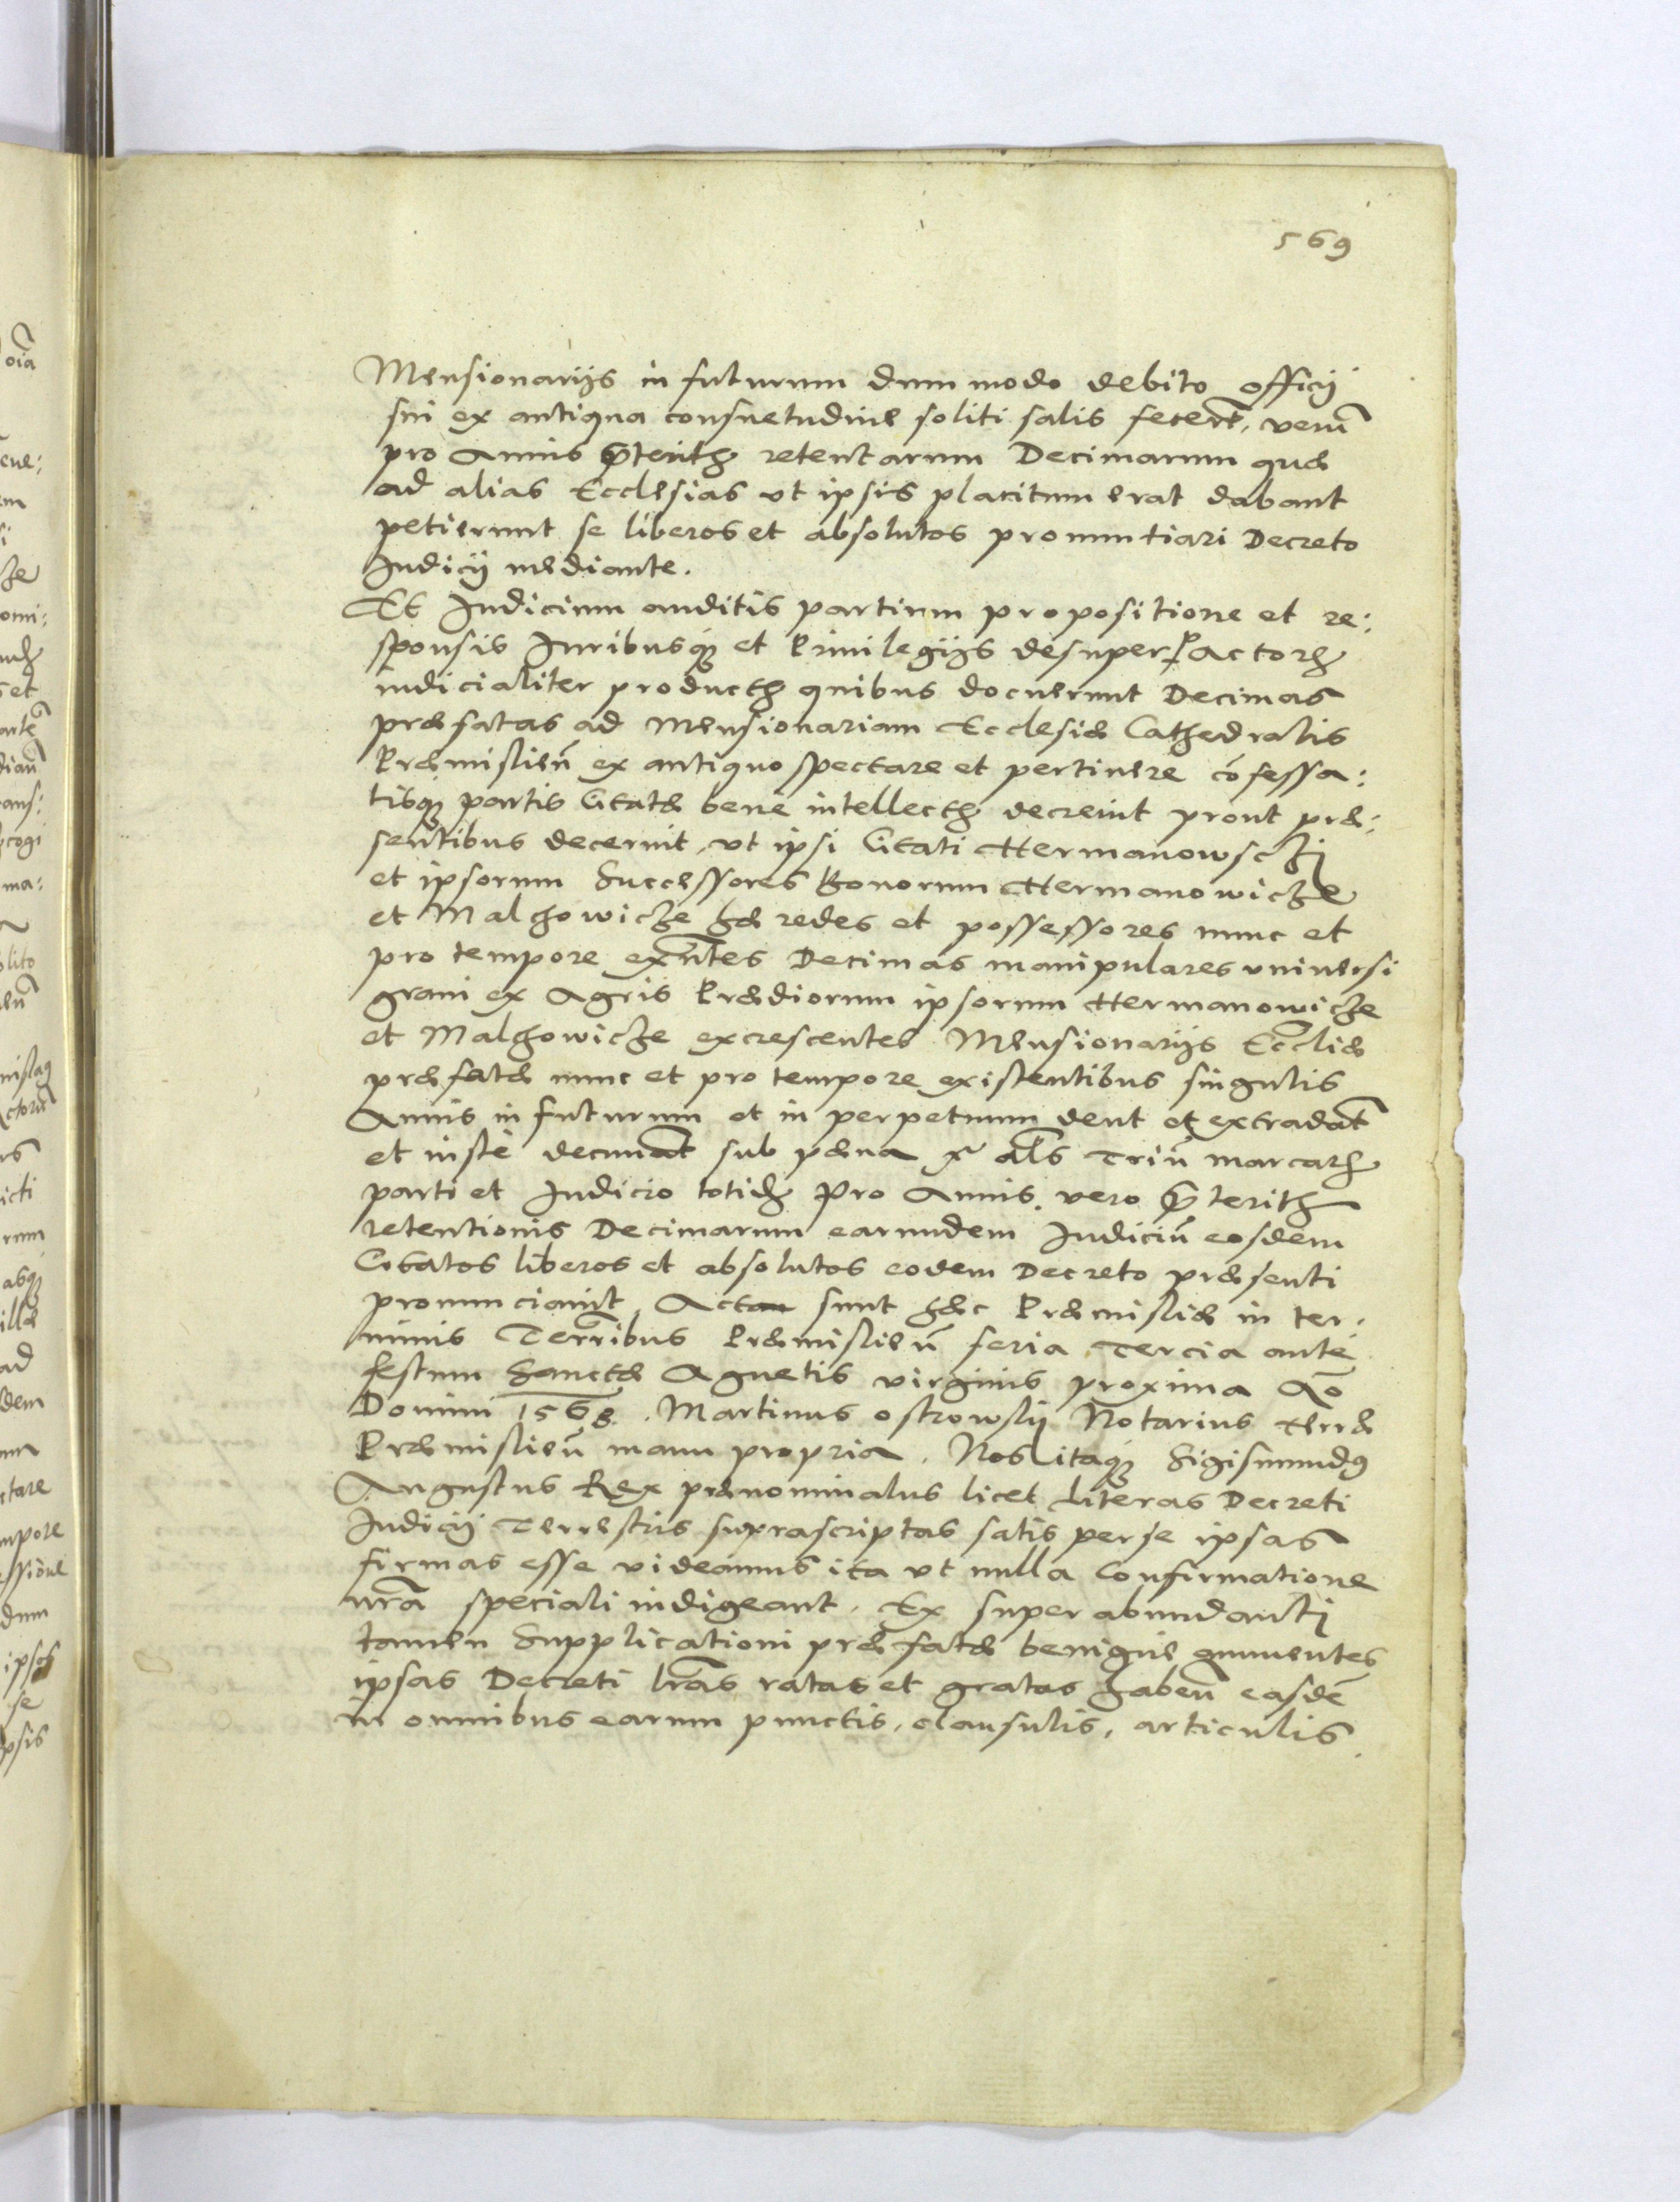 569
Mensionarijs in futurum dum modo debito officij
sui ex antiqua consuetudine soliti salis fecert, verum
pro Annis prӕteritis retentarum Decimarum quӕ
ad alias Ecclesias ut ipsis placitum erat dabant
petierunt se liberos et absolutos pronuntiari Decreto
Judicij mediante.
Et Judicium auditis partium propositione et re:
sponsis Juribusque et Priuilegijs desuper per Actorem
iudicialiter productis quibus docuerunt Decimas
prӕfatas ad Mensionariam Ecclesiӕ Cathedralis
Prӕmislieñ ex antiquo spectare et pertinere cõfessa:
tisque partis Citatӕ bene intellectis decreuit prout prӕ:
sentibus decernit, ut ipsi Citati Hermanowsczÿ
et ipsorum Successores Bonorum Hermanowicze
et Malchowicze hӕredes et possessores nunc et
pro tempore exñtes Decimas manipulares uniuersi
grani ex Agris Prӕdiorum ipsorum Hermanowicze
et Malchowicze excrescentes Mensionarijs Eccliӕ
prӕfatӕ nunc et pro tempore existentibus singulis
Annis in futurum et in perpetuum dent et extradãt
et iuste decimãt sub pӕna xv als Triũ marcarum
parti et Judicio totidem Pro Annis vero prӕteritis
retentionis Decimarum earundem Judiciũ eosdem
Citatos liberos et absolutos eodem Decreto prӕsenti
pronunciauit, Acta sunt hӕc Prӕmisliӕ in ter:
minis Terr̃ribus Prӕmislieñ feria Tercia ante
festum Sanctӕ Agnetis virginis proxima Ao
Domini 1568. Martinus ostrowskÿ Notarius terrӕ
Prӕmislieñ manu propria. Nos itaque Sigismundus
Augustus Rex prӕnominatus licet Literas Decreti
Judicij Terrestris suprascriptas satis per se ipsas
firmas esse videamus ita ut nulla Confirmatione
nr̃a speciali indigeant. Ex super abundanti
tamen Supplicationi prӕfatӕ benigne annuentes
ipsas Decreti lr̃as ratas et gratas habeñ easdẽ
in omnibus earum punctis, clausulis, articulis